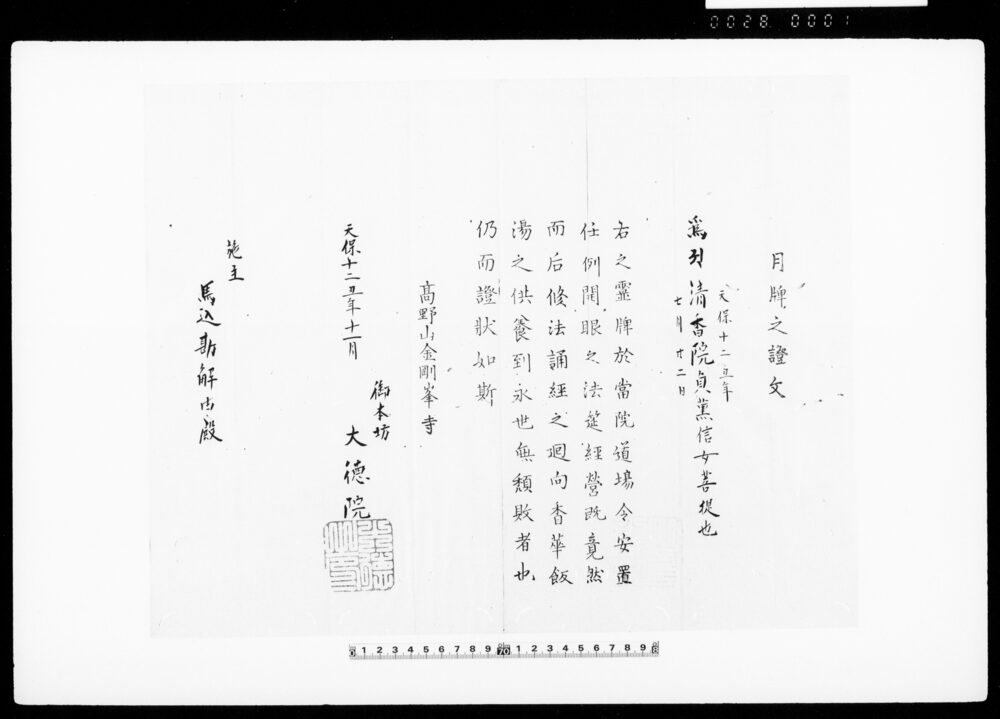 0028 0001
月牌之證文
天保十二丑年
七月廿二日
為 清香院貞薫信女菩提也
右之靈牌於當院道場令安置
任例開眼之法筵經營既竟然
而后修法誦經之廻向香華飯
湯之供養到永世無頽敗者也
仍而證狀如斯
髙野山金剛峯寺
御本坊
大德院
天保十二丑年十一月
施主
馬込勘解由殿
0 1 2 3 4 5 6 7 8 9 70 1 2 3 4 5 6 7 8 9 8